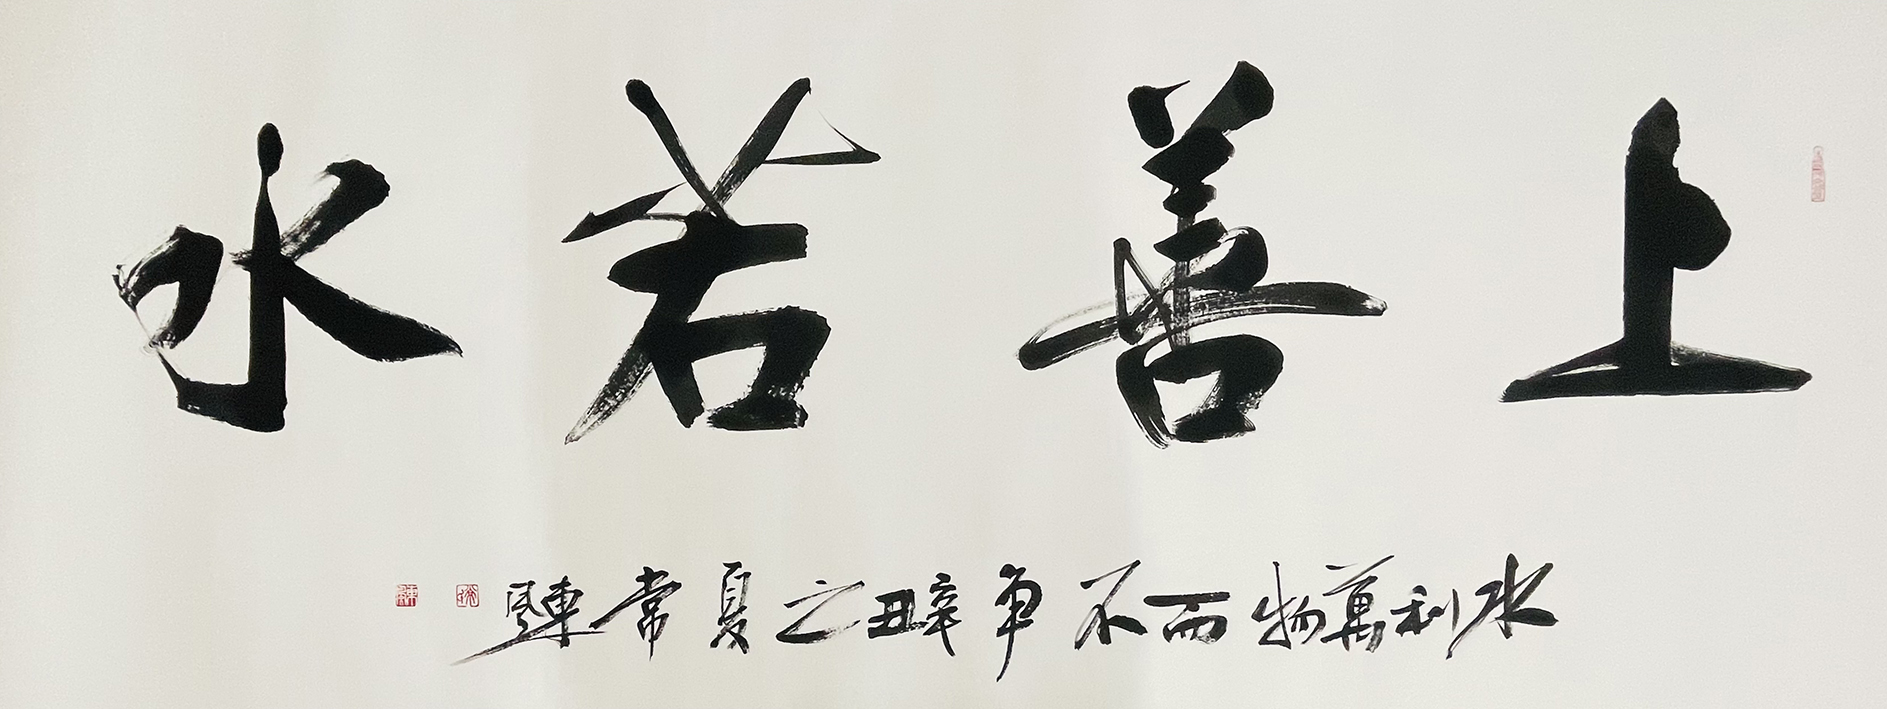 上善若水
水利萬物而不爭辛丑之夏常